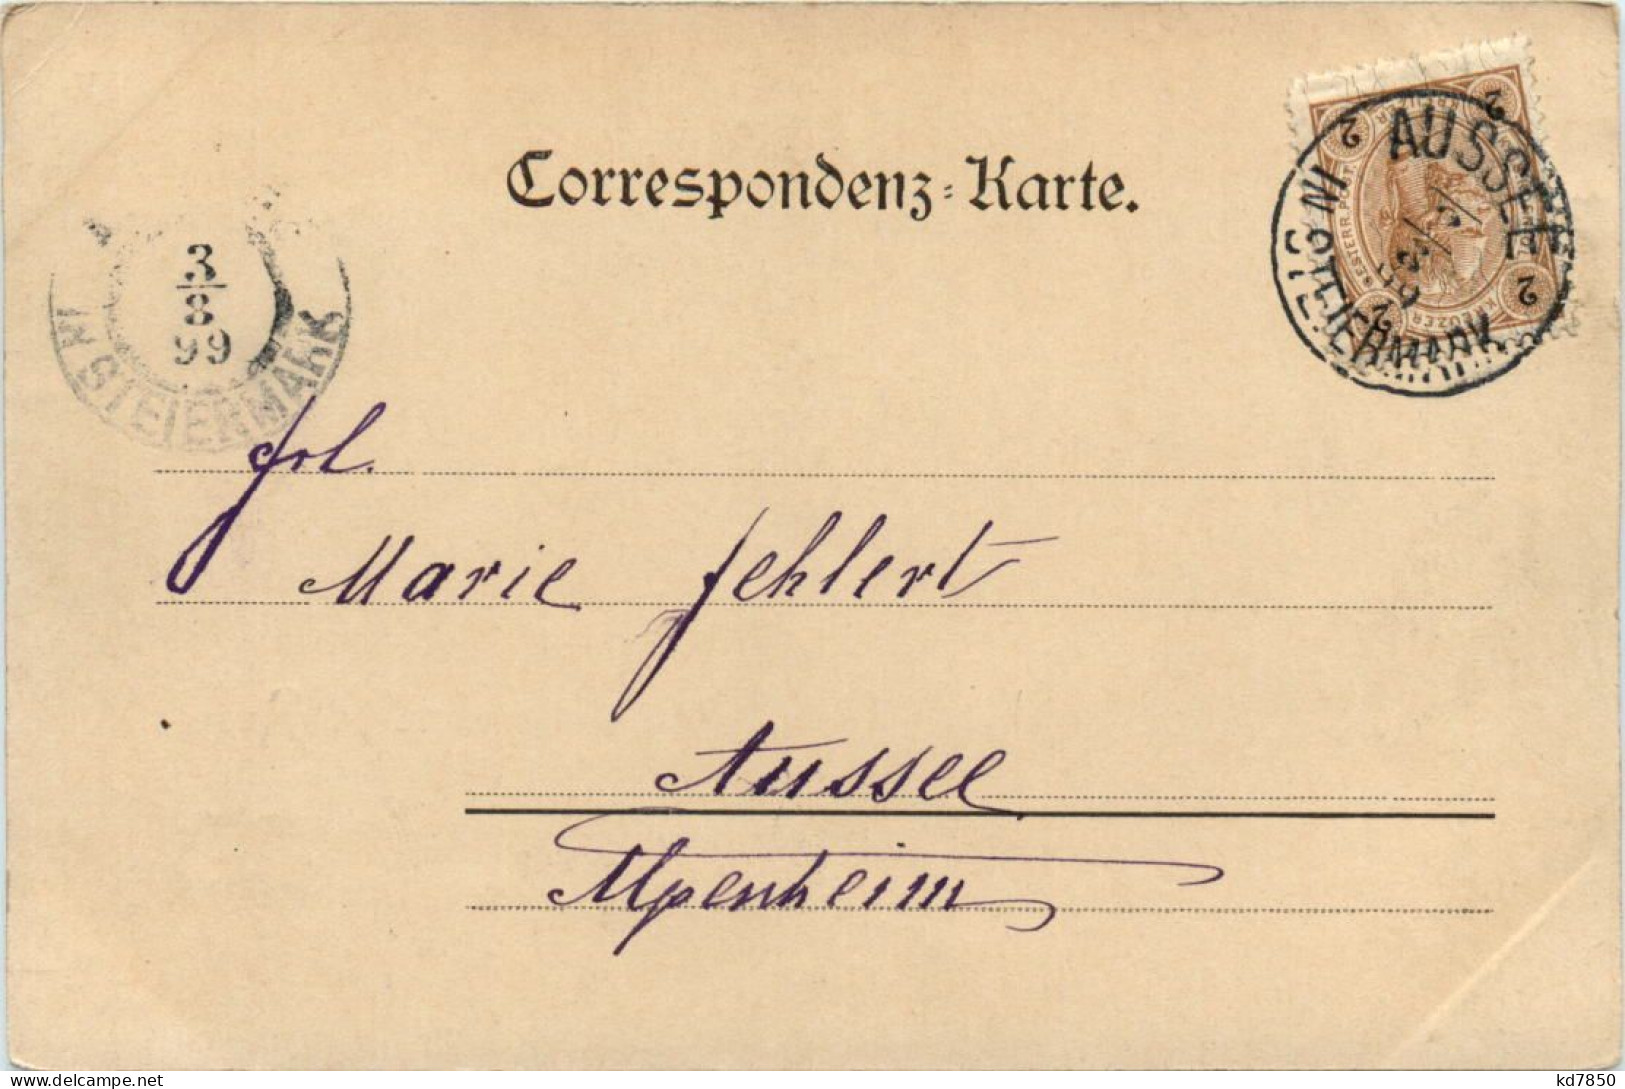 Correspondenz-Karte.
AUSSEE
IN STEIERMARK
2 2
2 2
KREUZER
OESTERR. POST
3/8
99
IN STEIERMARK
Frl.
Marie Fehlert
Aussee
Alpenheim
kd7850